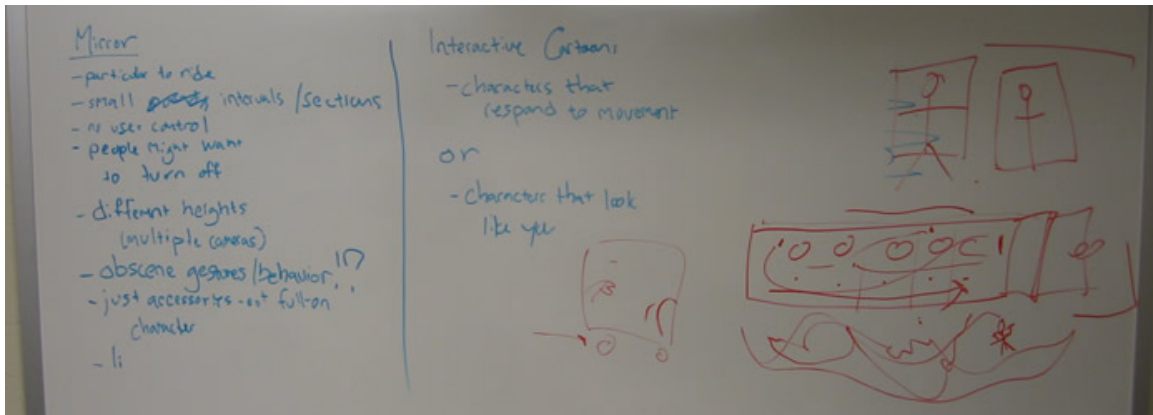 Mirror
- particular to ride
- small intervals/sections
- no user control
- people might want
to turn off
- different heights
(multiple cameras)
- obscene gestures/behavior!!?
- just accessories - not full-on
character
- li
Interactive Cartoons
- characters that
respond to movement
or
- characters that look
like you